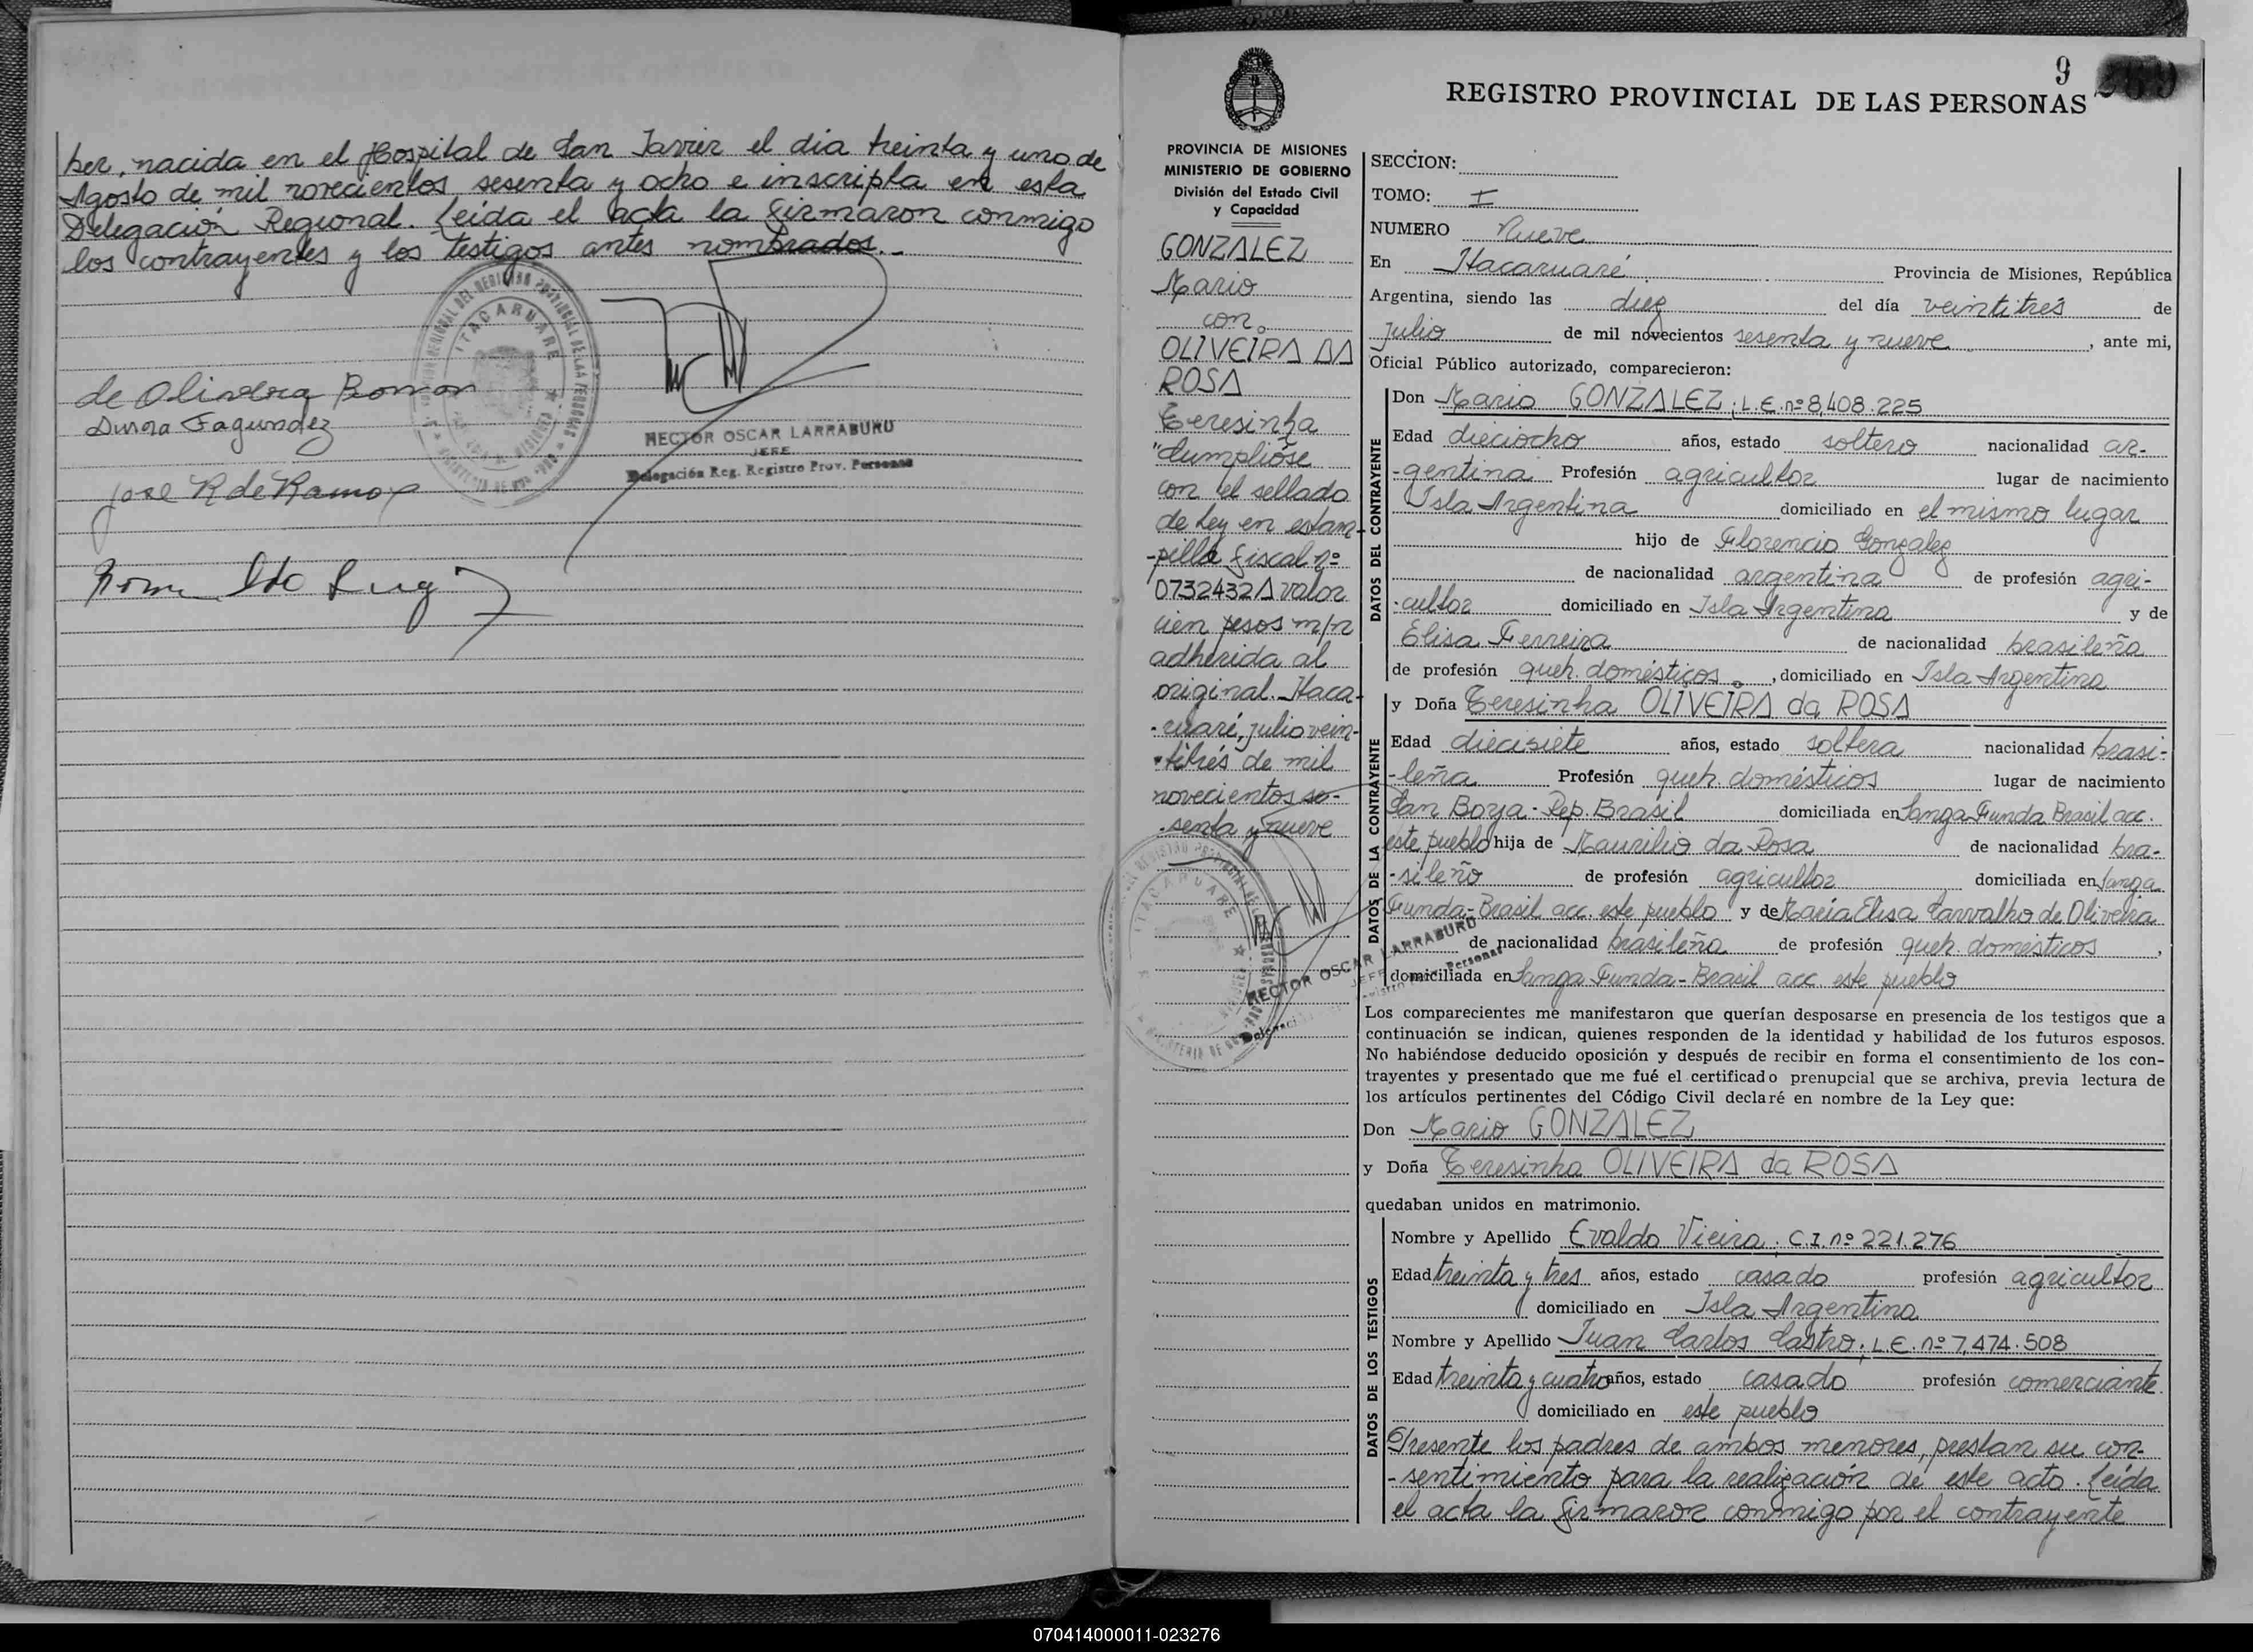 ber, nacida en el Hospital de San Javier el día treinta y uno de
Agosto de mil novecientos sesenta y ocho e inscripta en esta
Delegación Regional. Leída el acta la firmaron conmigo
los contrayentes y los testigos antes nombrados.-
ITACARUARE
de Olivera Ramon
HECTOR OSCAR LARRABURU
JEFE
Delegación Reg. Registro Prov. Personas
Fagundez
Jose R de Ramos
9
REGISTRO PROVINCIAL DE LAS PERSONAS
PROVINCIA DE MISIONES
MINISTERIO DE GOBIERNO
División del Estado Civil
y Capacidad
GONZALEZ
Mario
con
OLIVEIRA DA
ROSA
Teresinha
"Cumplióse
con el sellado
de Ley en estam-
-pilla fiscal nº
0732432A valor
cien pesos m/n
adherida al
original. Itaca-
-ruaré, julio vein-
-titrés de mil
novecientos se-
-senta y nueve
ITACARUARE
HECTOR OSCAR LARRABURU
JEFE
SECCION:
TOMO: I
NUMERO Nueve
En Itacaruaré Provincia de Misiones, República
Argentina, siendo las diez del día veintitrés de
Julio de mil novecientos sesenta y nueve, ante mi,
Oficial Público autorizado, comparecieron:
DATOS DEL CONTRAYENTE
Don Mario GONZALEZ; L.E. nº 8,408.225
Edad dieciocho años, estado soltero nacionalidad ar-
-gentina Profesión agricultor lugar de nacimiento
Isla Argentina domiciliado en el mismo lugar
hijo de Florencio Gonzalez
de nacionalidad argentina de profesión agri-
-cultor domiciliado en Isla Argentina y de
Elisa Ferreira de nacionalidad brasileña
de profesión queh. domésticos, domiciliado en Isla Argentina
DATOS DE LA CONTRAYENTE
y Doña Teresinha OLIVEIRA da ROSA
Edad diecisiete años, estado soltera nacionalidad brasi-
-leña Profesión queh. domésticos lugar de nacimiento
San Borja - Rep. Brasil domiciliada en Sanga Funda Brasil acc.
este pueblo hija de Maurilio da Rosa de nacionalidad bra-
-sileño de profesión agricultor domiciliada en Sanga
Funda-Brasil acc. este pueblo y de María Elisa Carvalho de Oliveira
de nacionalidad brasileña de profesión queh. domésticos,
domiciliada en Sanga Funda-Brasil acc este pueblo
Los comparecientes me manifestaron que querían desposarse en presencia de los testigos que a
continuación se indican, quienes responden de la identidad y habilidad de los futuros esposos.
No habiéndose deducido oposición y después de recibir en forma el consentimiento de los con-
trayentes y presentado que me fué el certificado prenupcial que se archiva, previa lectura de
los artículos pertinentes del Código Civil declaré en nombre de la Ley que:
Don Mario GONZALEZ
y Doña Teresinha OLIVEIRA da ROSA
quedaban unidos en matrimonio.
DATOS DE LOS TESTIGOS
Nombre y Apellido Evaldo Vieira; C.I. nº 221.276
Edad treinta y tres años, estado casado profesión agricultor
domiciliado en Isla Argentina
Nombre y Apellido Juan Carlos Castro; L.E. nº 7,474.508
Edad treinta y cuatro años, estado casado profesión comerciante
domiciliado en este pueblo
Presente los padres de ambos menores, prestan su con-
-sentimiento para la realización de este acto. Leída
el acta la firmaron conmigo por el contrayente
070414000011-023276